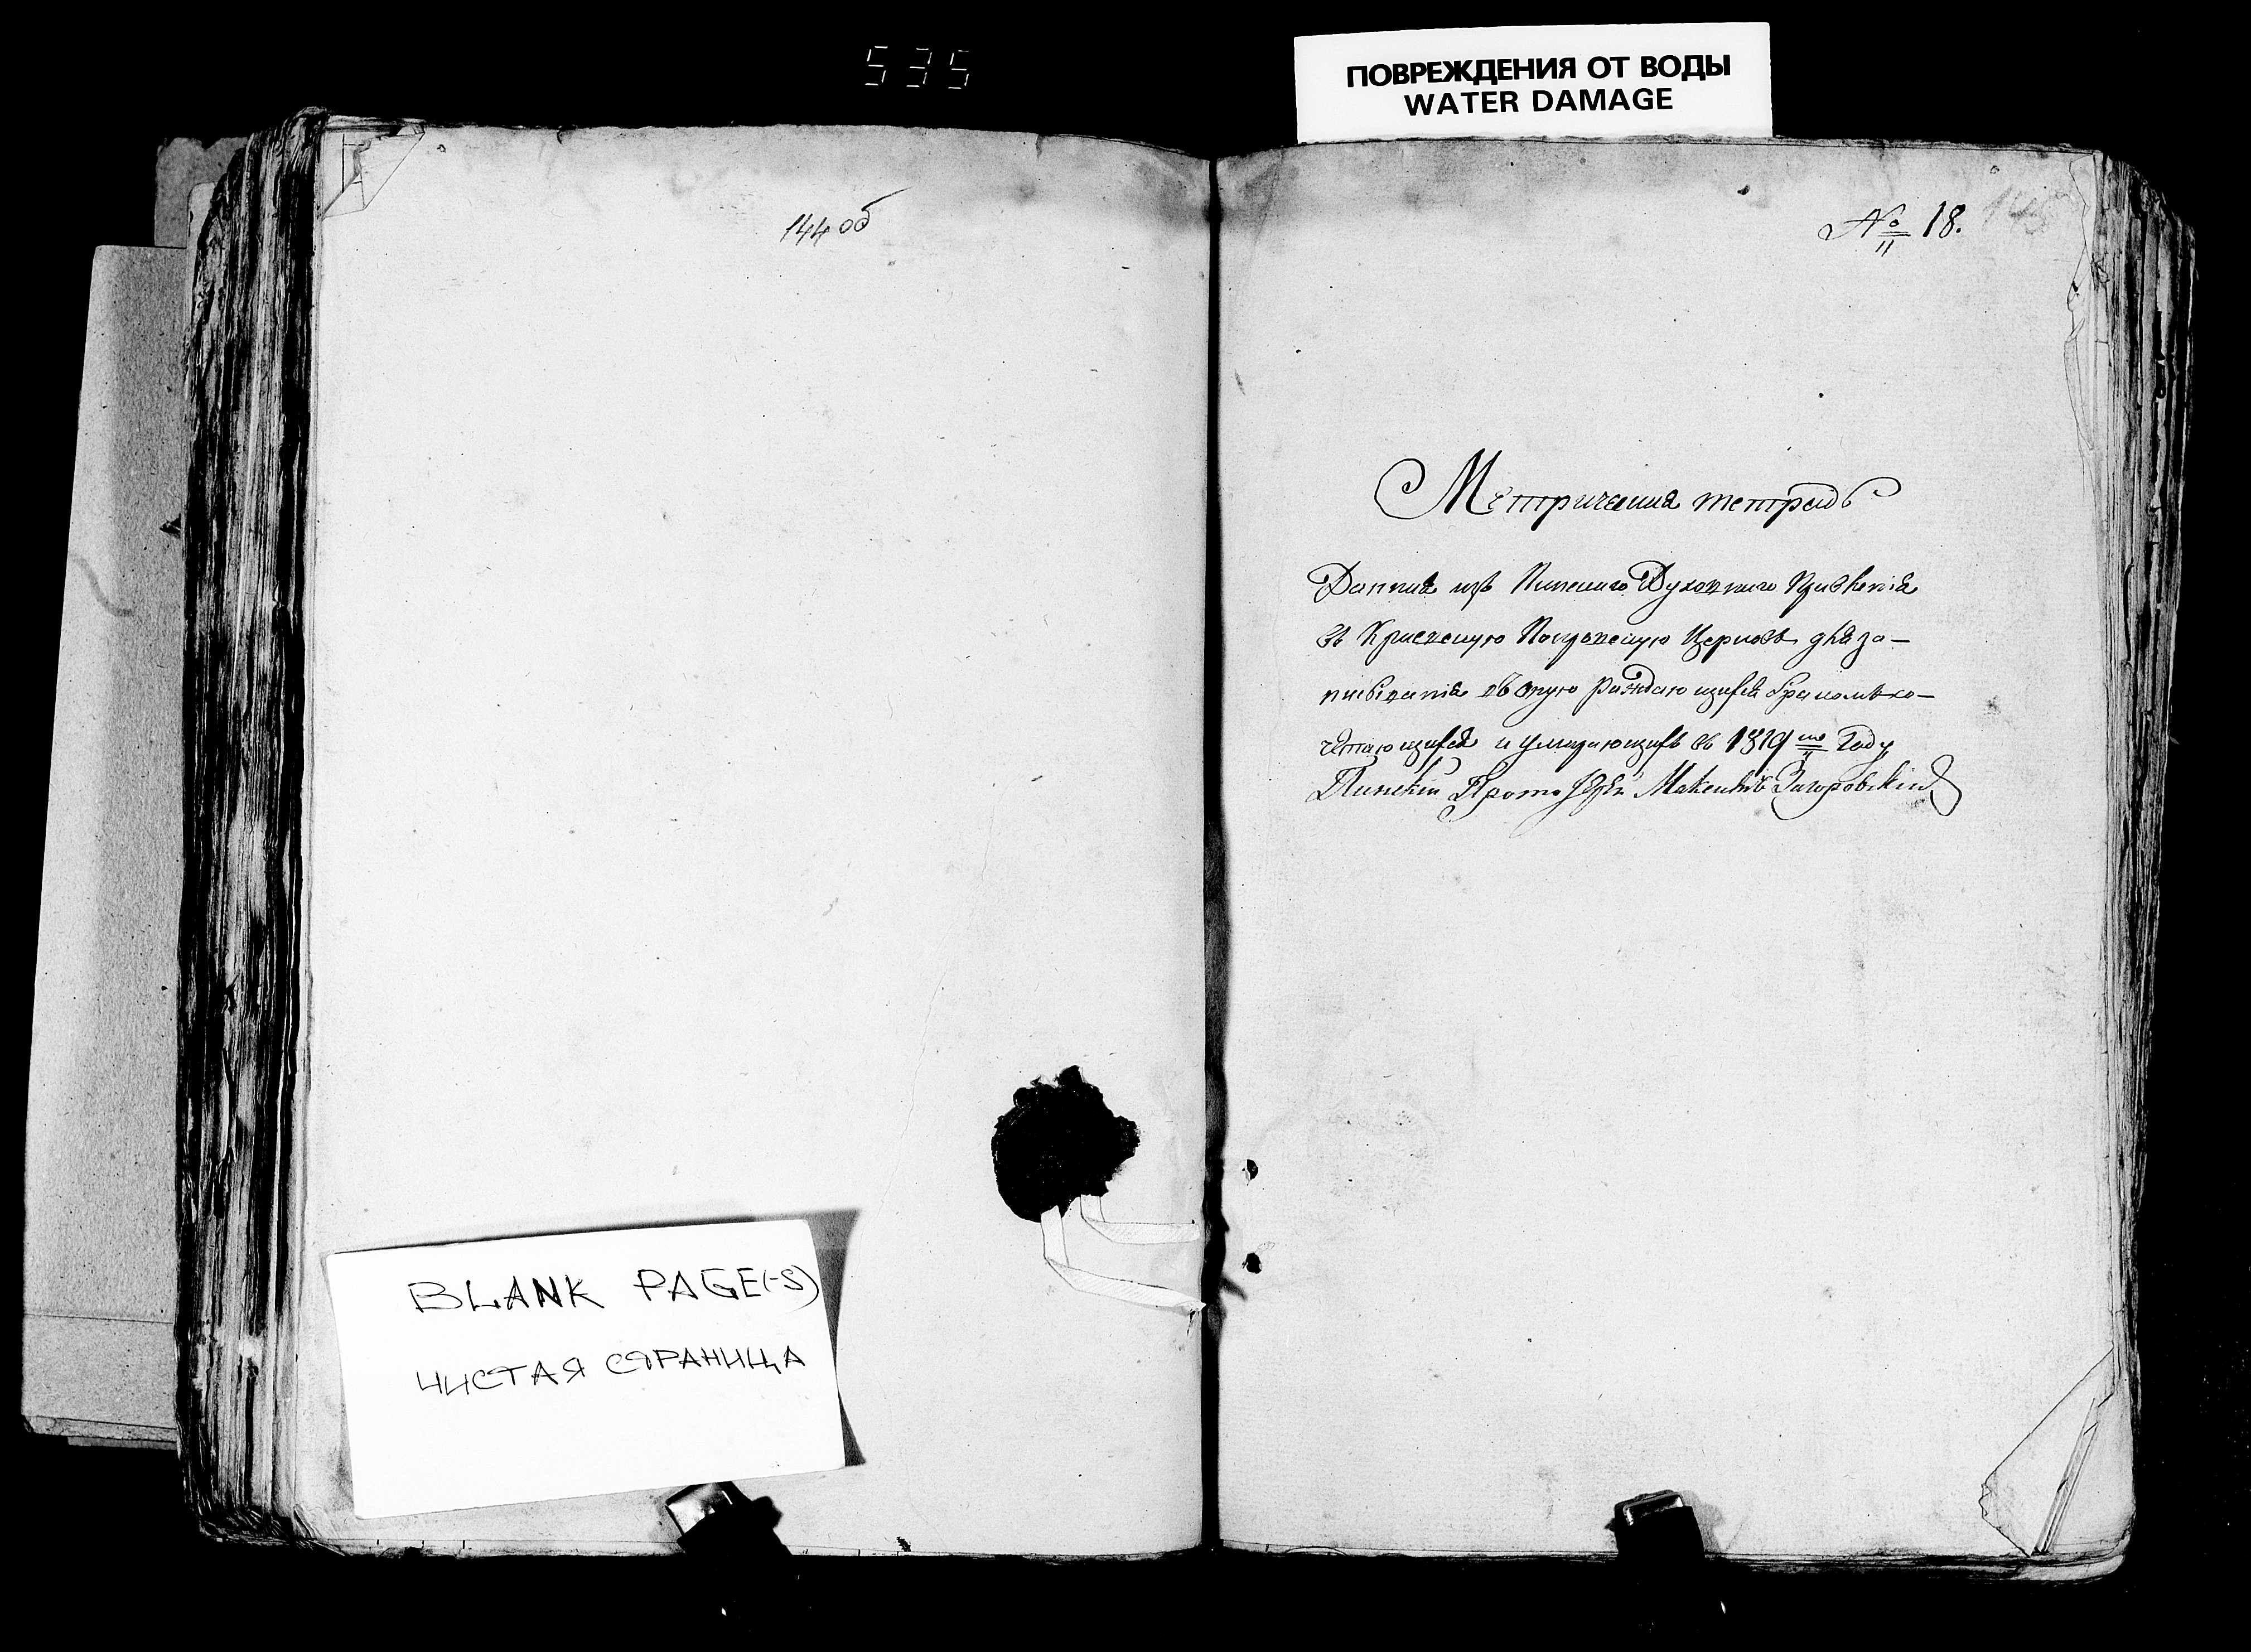 535
ПОВРЕЖДЕНИЯ ОТ ВОДЫ
WATER DAMAGE
144 об
№ 18.
145
Метричная тетрадь
Данная изъ Пинскаго Духовнаго Правленія
въ Покровскую Церковь для за-
писыванія въ оную раждающихся бракомъ со-
четающихся и умирающихъ въ 1819мъ Году
Пинскій Протоіерей Загоровскій
BLANK PAGE(-S)
ЧИСТАЯ СТРАНИЦА